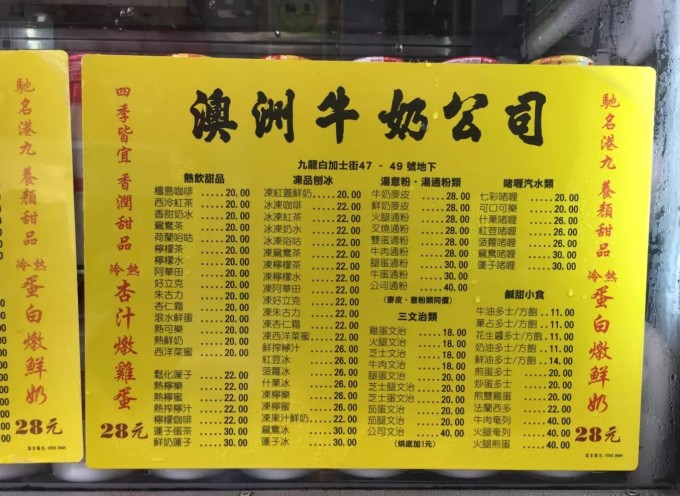 澳洲牛奶公司
九龍白加士街47 - 49 號地下
馳名港九 養顏甜品
冷熱 蛋白燉鮮奶
28元
四季皆宜 香潤甜品
冷熱 杏汁燉雞蛋
28元
熱飲甜品
檀島咖啡 ..... 20.00
西冷紅茶 ..... 20.00
香甜奶水 ..... 20.00
鴛鴦茶 ..... 20.00
荷蘭唂咕 ..... 20.00
檸檬茶 ..... 20.00
檸檬水 ..... 20.00
阿華田 ..... 20.00
好立克 ..... 20.00
朱古力 ..... 20.00
杏仁霜 ..... 20.00
滾水鮮蛋 ..... 20.00
熱可樂 ..... 20.00
熱鮮奶 ..... 20.00
西洋菜蜜 ..... 20.00
鬆化崾子 ..... 22.00
熱檸樂 ..... 22.00
熱檸蜜 ..... 22.00
熱檸汁 ..... 22.00
檸檬咖啡 ..... 22.00
蓮子蛋茶 ..... 30.00
鮮奶蓮子 ..... 30.00
凍品刨冰
凍紅蓋鮮奶 ..... 20.00
冰凍咖啡 ..... 22.00
冰凍紅茶 ..... 22.00
冰凍奶水 ..... 22.00
冰凍唂咕 ..... 22.00
凍鴛鴦茶 ..... 22.00
凍檸檬茶 ..... 22.00
凍檸檬水 ..... 22.00
凍阿華田 ..... 22.00
凍好立克 ..... 22.00
凍朱古力 ..... 22.00
凍杏仁霜 ..... 22.00
凍西洋菜蜜 ..... 22.00
鮮搾檸汁 ..... 26.00
紅荳冰 ..... 26.00
菠蘿冰 ..... 26.00
什菓冰 ..... 26.00
凍檸樂 ..... 26.00
凍檸蜜 ..... 22.00
凍菓汁鮮奶 ..... 22.00
鴛鴦冰 ..... 30.00
蓮子冰 ..... 30.00
湯意粉・湯通粉類
牛奶麥皮 ..... 28.00
鮮奶麥皮 ..... 28.00
火腿通粉 ..... 28.00
叉燒通粉 ..... 28.00
雙蛋通粉 ..... 28.00
牛肉通粉 ..... 28.00
腿蛋通粉 ..... 30.00
牛蛋通粉 ..... 30.00
公司通粉 ..... 40.00
(麥皮・意粉類同價)
三文治類
雞蛋文治 ..... 18.00
火腿文治 ..... 18.00
芝士文治 ..... 18.00
牛肉文治 ..... 18.00
腿蛋文治 ..... 20.00
芝士腿文治 ..... 20.00
芝士蛋文治 ..... 20.00
茄蛋文治 ..... 20.00
茄腿文治 ..... 20.00
公司文治 ..... 40.00
(烘底加1元)
啫喱汽水類
七彩啫喱 ..... 20.00
可口可樂 ..... 20.00
什菓啫喱 ..... 26.00
紅荳啫喱 ..... 26.00
菠蘿啫喱 ..... 26.00
鴛鴦啫喱 ..... 30.00
蓮子啫喱 ..... 30.00
鹹甜小食
牛油多士/方飽 .. 11.00
菓占多士/方飽 .. 11.00
花生醬多士/方飽 .. 11.00
奶油多士/方飽 .. 11.00
鮮油多士/方飽 .. 14.00
煎蛋多士 ..... 20.00
炒蛋多士 ..... 20.00
煎雙雞蛋 ..... 20.00
法蘭西多 ..... 22.00
牛肉奄列 ..... 40.00
火腿奄列 ..... 40.00
火腿煎蛋 ..... 40.00
馳名港九 養顏甜品
冷熱 蛋白燉鮮奶
28元